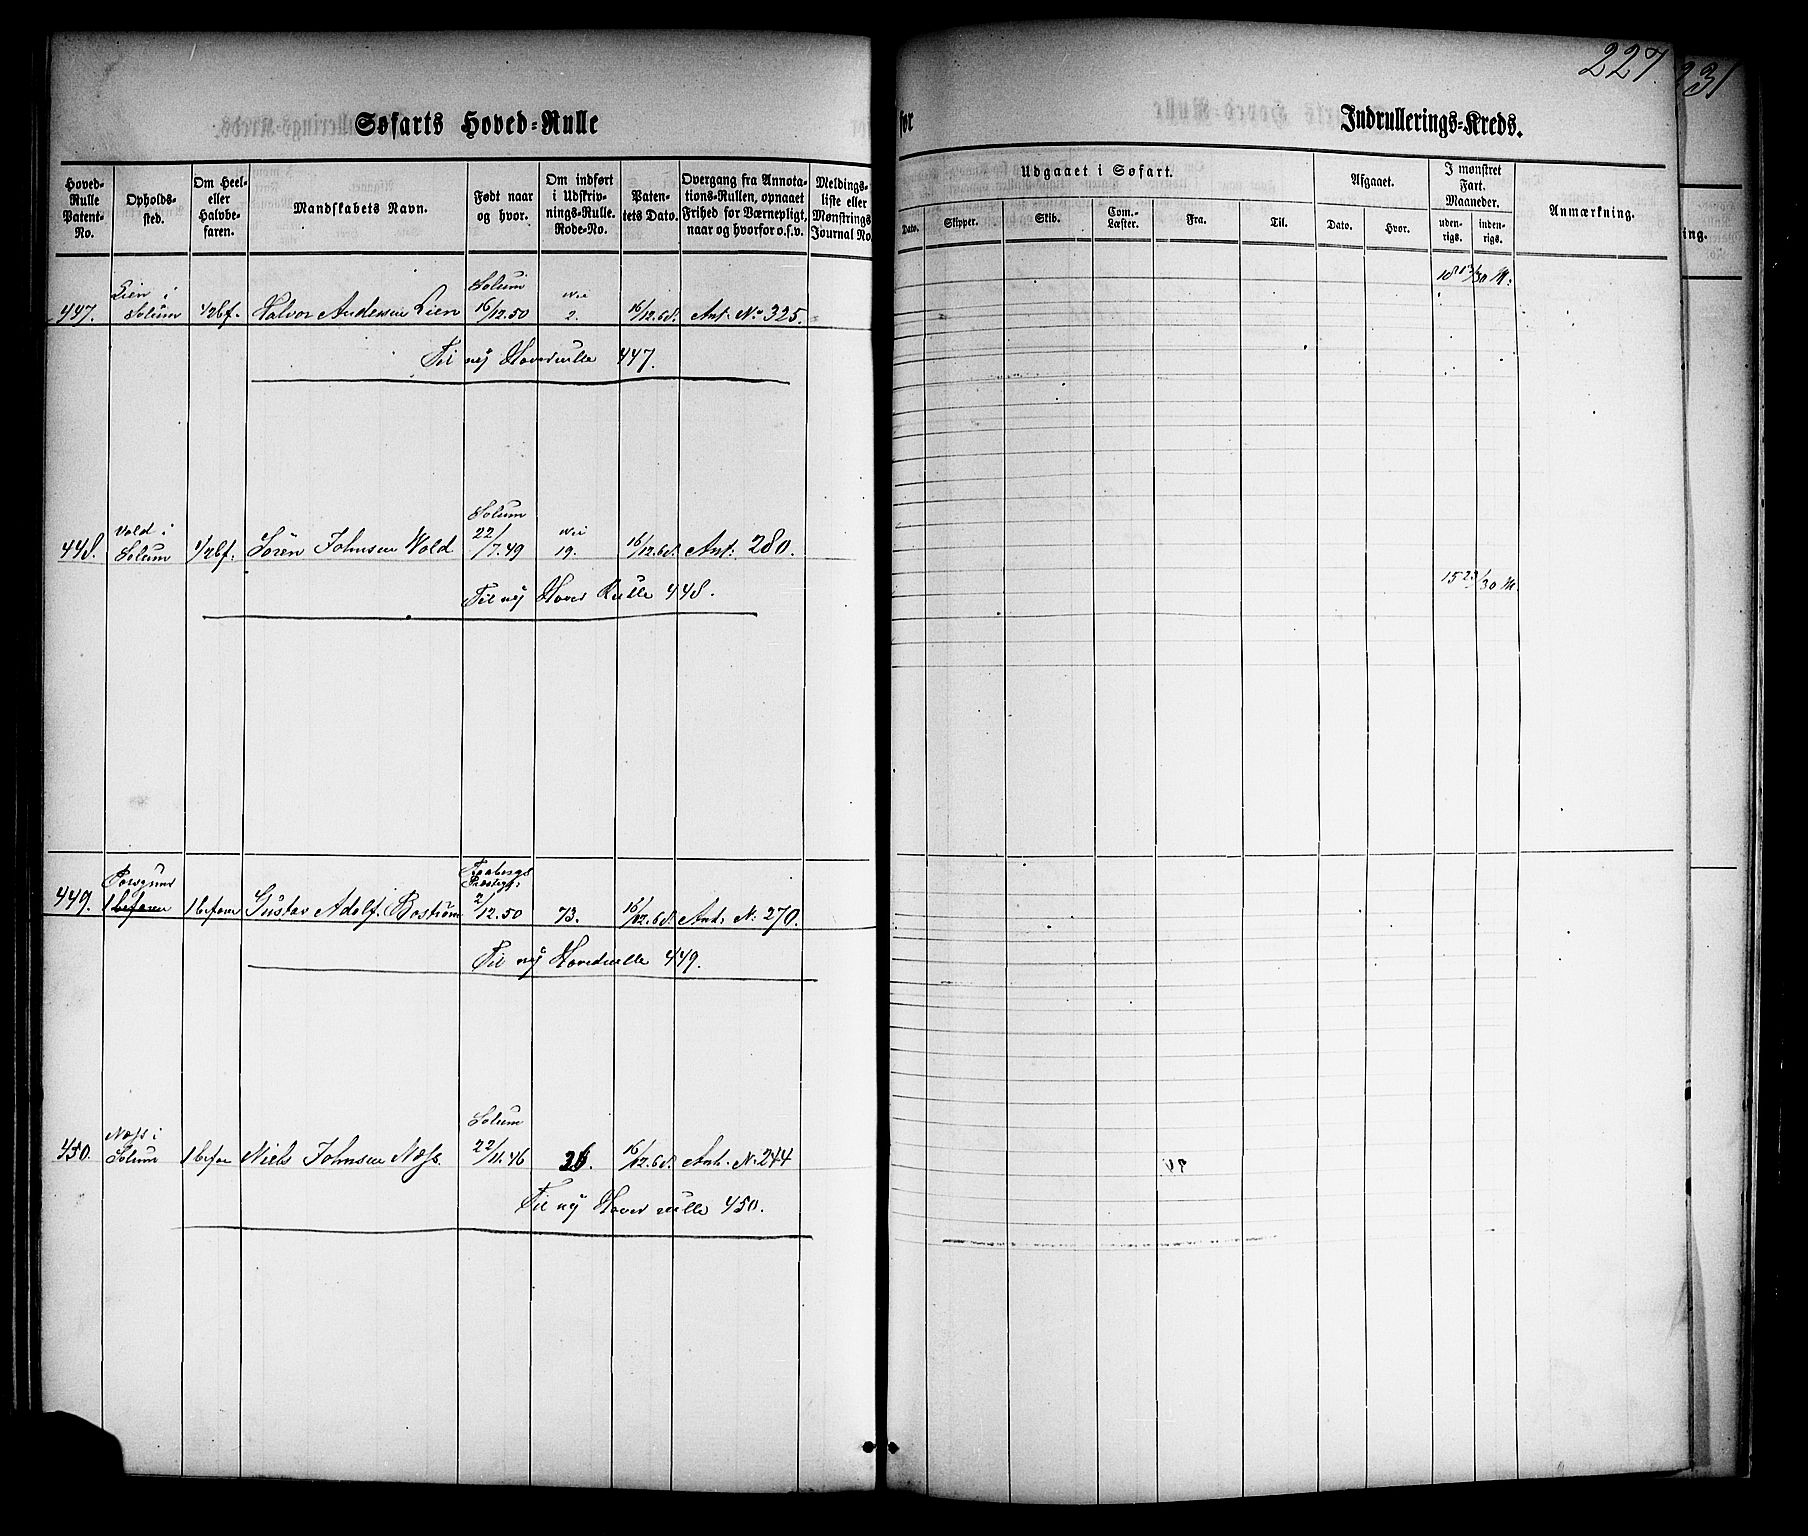 227
231
Søfarts Hoved-Rulle
for
Indrullerings-Kreds.
Hoved-Rulle Patent-No.
Opholds-sted.
Om Heel- eller Halvbe-faren.
Mandskabets Navn.
Født naar og hvor.
Om indført i Udskriv-nings-Rulle. Rode-No.
Paten-tets Dato.
Overgang fra Annota-tions-Rullen, opnaaet Frihed for Værnepligt, naar og hvorfor o.s.v.
Meldings-liste eller Mønstrings Journal No.
Udgaaet i Søfart.
Dato.
Skipper.
Skib.
Com.-Læster.
Fra.
Til.
Afgaaet.
Dato.
Hvor.
I mønstret Fart. Maaneder.
uden-rigs.
inden-rigs.
Anmærkning.
ing.
Lien i Solum
Solum
447. 1/2bf. Halvor Andersen Lien 16/12.50 2. 16/12.68. Ant: No 325.
Til nÿ Hovedrulle 447.
Vold i Solum
Solum
448. 1/2bf. Sören Johnsen Wold 22/7.49 19. 16/12.68. Ant: 280.
Til nÿ Hoved Rulle 448.
15 23/30 M.
Porsgrund
449. 1befaren 1befaren Gustav Adolf Boström 2/12.50 73. 16/12.68. Ant: No 270.
Til nÿ Hovedrulle 449.
Næss i Solum
Solum
450. 1befar Niels Johnsen Næss. 22/11.46 26. 16/12.68. Ant. No 244
Til nÿ Hoved rulle 450.